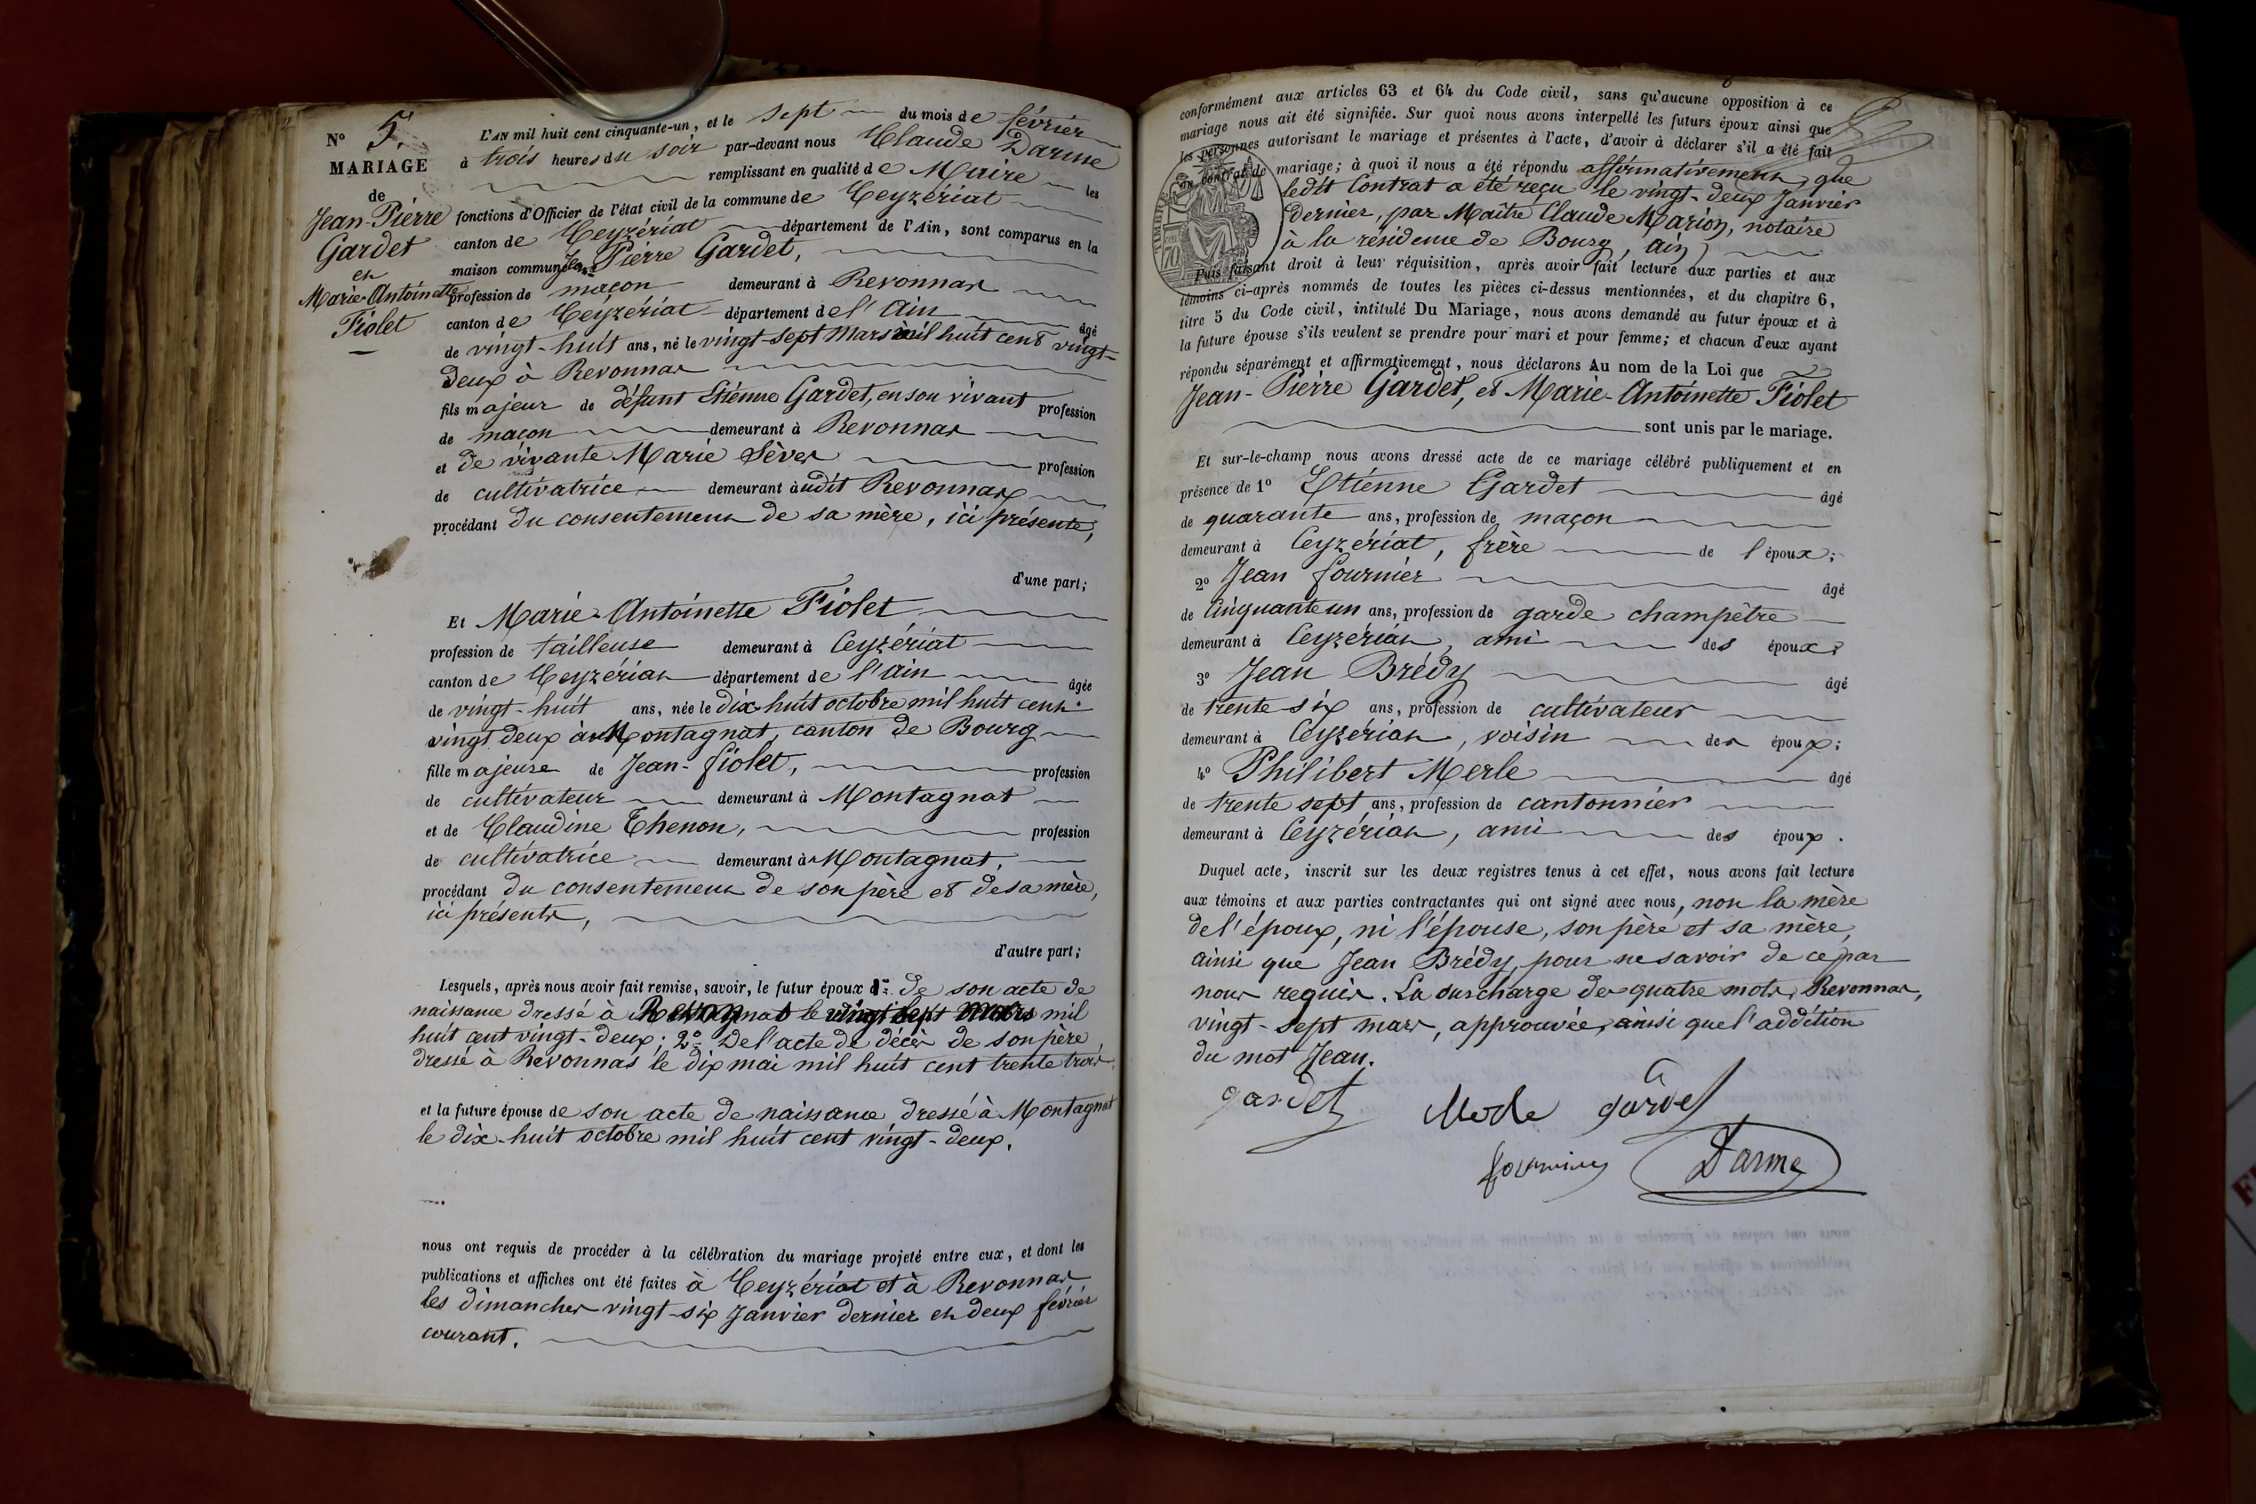 N° 5.
MARIAGE
de
Jean-Pierre
Gardet
et
Marie-Antoinette
Fiolet
L'AN mil huit cent cinquante-un, et le sept du mois de février
à trois heures du soir par-devant nous Claude Darme
remplissant en qualité de Maire les
fonctions d'Officier de l'état civil de la commune de Ceyzériat
canton de Ceyzériat département de l'Ain, sont comparus en la
maison commune Jean Pierre Gardet,
profession de maçon demeurant à Revonnas
canton de Ceyzériat département de l'Ain âgé
de vingt-huit ans, né le vingt-sept Mars mil huit cent vingt-
deux à Revonnas
fils majeur de défunt Etienne Gardet, en son vivant profession
de maçon demeurant à Revonnas
et de vivante Marie Sèves profession
de cultivatrice demeurant audit Revonnas
procédant du consentement de sa mère, ici présente,
d'une part;
Et Marie-Antoinette Fiolet
profession de tailleuse demeurant à Ceyzériat
canton de Ceyzériat département de l'Ain âgée
de vingt-huit ans, née le dix-huit octobre mil huit cent
vingt deux à Montagnat, canton de Bourg
fille majeure de Jean-fiolet, profession
de cultivateur demeurant à Montagnat
et de Claudine Thenon, profession
de cultivatrice demeurant à Montagnat,
procédant du consentement de son père et de sa mère,
ici présents,
d'autre part;
Lesquels, après nous avoir fait remise, savoir, le futur époux 1°. de son acte de
naissance dressé à Revonnas le vingt sept mars mil
huit cent vingt-deux; 2° De l'acte de décès de son père
dressé à Revonnas le dix mai mil huit cent trente trois
et la future épouse de son acte de naissance dressé à Montagnat
le dix-huit octobre mil huit cent vingt-deux.
nous ont requis de procéder à la célébration du mariage projeté entre eux, et dont les
publications et affiches ont été faites à Ceyzériat et à Revonnas
les dimanches vingt-six Janvier dernier et deux février
courant.
conformément aux articles 63 et 64 du Code civil, sans qu'aucune opposition à ce
mariage nous ait été signifiée. Sur quoi nous avons interpellé les futurs époux ainsi que
les personnes autorisant le mariage et présentes à l'acte, d'avoir à déclarer s'il a été fait
un contrat de mariage; à quoi il nous a été répondu affirmativement, que
ledit Contrat a été reçu le vingt-deux Janvier
dernier, par Maître Claude Marion, notaire
à la résidence de Bourg, (ain)
Puis faisant droit à leur réquisition, après avoir fait lecture aux parties et aux
témoins ci-après nommés de toutes les pièces ci-dessus mentionnées, et du chapitre 6,
titre 5 du Code civil, intitulé Du Mariage, nous avons demandé au futur époux et à
la future épouse s'ils veulent se prendre pour mari et pour femme; et chacun d'eux ayant
répondu séparément et affirmativement, nous déclarons Au nom de la Loi que
Jean-Pierre Gardet, et Marie-Antoinette Fiolet
sont unis par le mariage.
Et sur-le-champ nous avons dressé acte de ce mariage célébré publiquement et en
présence de 1° Etienne Gardet âgé
de quarante ans, profession de maçon
demeurant à Ceyzériat, frère de l'époux;
2° Jean fournier âgé
de Cinquante un ans, profession de garde champêtre
demeurant à Ceyzériat, ami des époux;
3° Jean Brédy âgé
de trente six ans, profession de cultivateur
demeurant à Ceyzériat, voisin des époux;
4° Philibert Merle âgé
de trente sept ans, profession de cantonnier
demeurant à Ceyzériat, ami des époux.
Duquel acte, inscrit sur les deux registres tenus à cet effet, nous avons fait lecture
aux témoins et aux parties contractantes qui ont signé avec nous, non la mère
de l'époux, ni l'épouse, son père et sa mère,
ainsi que Jean Brédy, pour ne savoir de ce par
nous requis. La surcharge des quatre mots, Revonnas,
vingt-sept mars, approuvée, ainsi que l'addition
du mot Jean.
gardet Merle gardet
fournier Darme